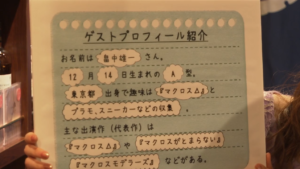 ゲストプロフィール紹介
お名前は 畠中雄一 さん。
12 月 14 日生まれの A 型。
東京都 出身で趣味は『マクロス△』と
プラモ、スニーカーなどの収集 。
主な出演作（代表作）は
『マクロス△』や『マクロスがとまらない』
『マクロスモデラーズ』 などがある。